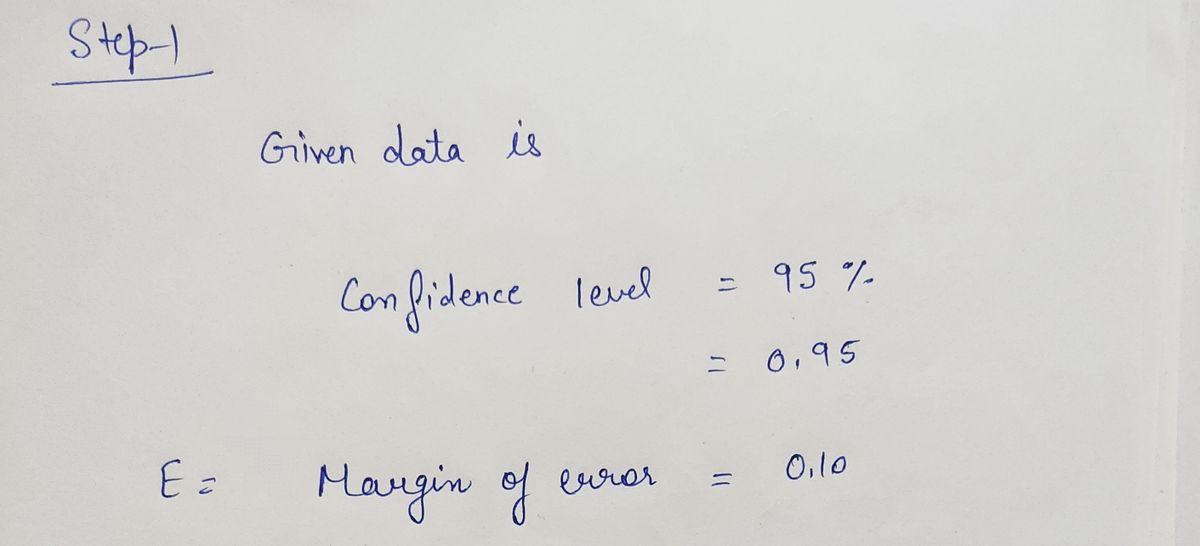 Step-1
Given data is
Confidence level = 95 %
= 0.95
E = Margin of error = 0.10